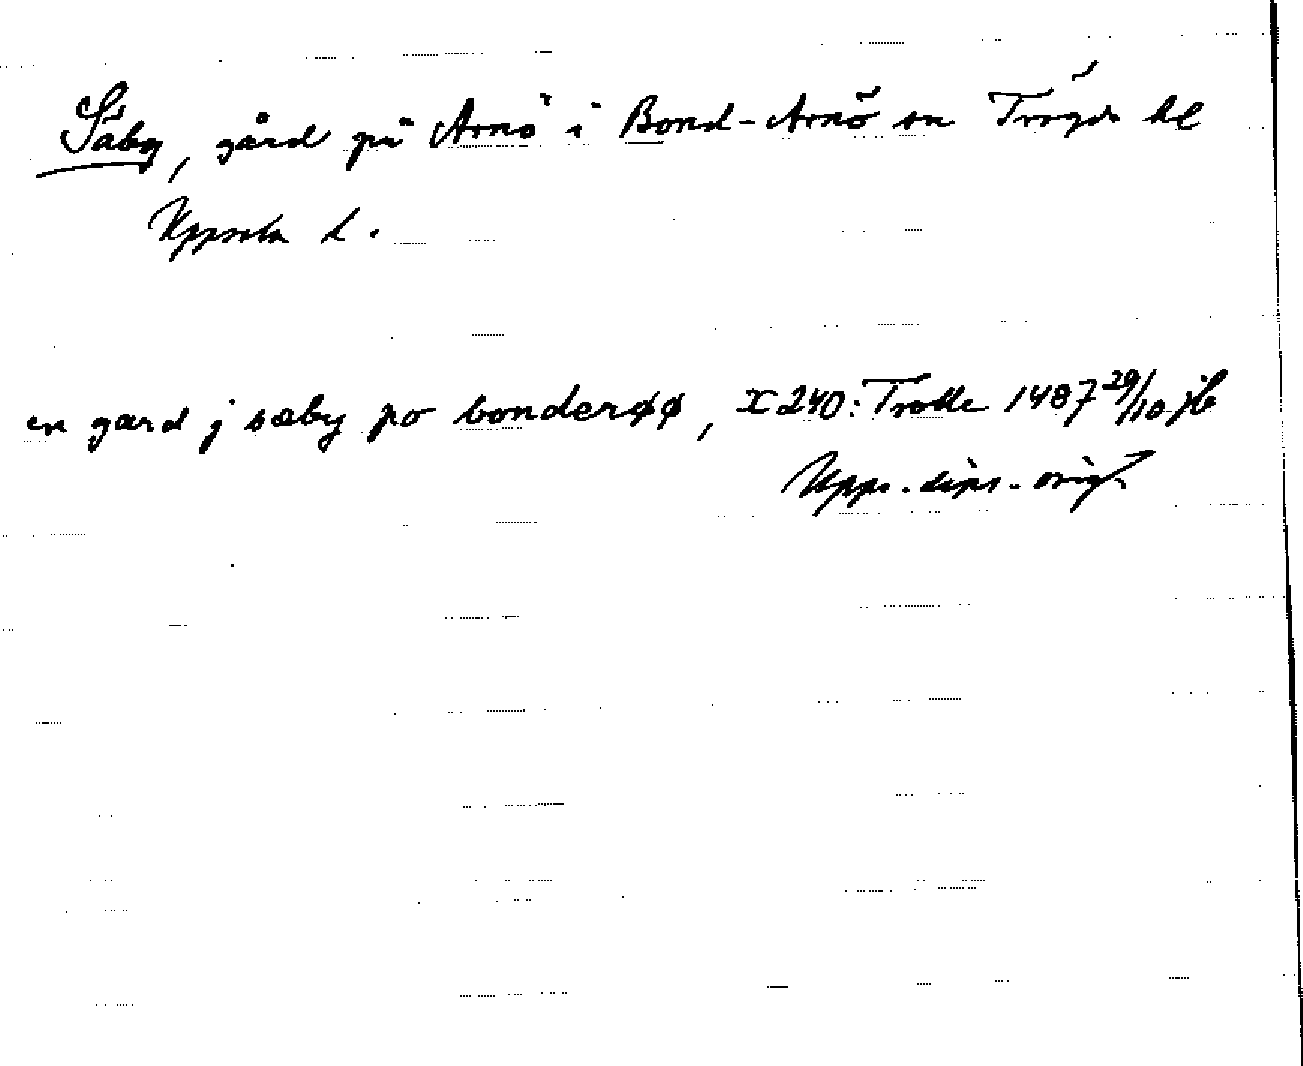 Säby, gård på Arnö i Bond-Arnö sn Trögds hd
Uppsala l.
en gard j sæby po bonderøø, X 240: Trolle 1487 29/10 jb
Upps. dipl. orig.